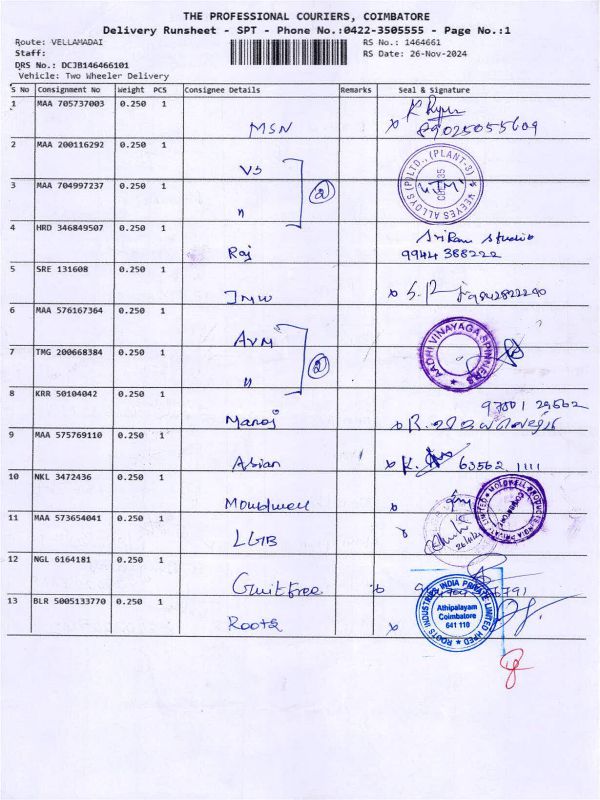 THE PROFESSIONAL COURIERS, COIMBATORE
Delivery Runsheet - SPT - Phone No.:0422-3505555 - Page No.:1
Route: VELLAMADAI
RS No.: 1464661
Staff:
RS Date: 26-Nov-2024
DRS No.: DCJB146466101
Vehicle: Two Wheeler Delivery
S No Consignment No Weight PCS Consignee Details Remarks Seal & Signature
1 MAA 705737003 0.250 1 MSN
2 MAA 200116292 0.250 1 VS
VEEYES ALLOYS (P) LTD., (PLANT-3)
3 MAA 704997237 0.250 1 " 2
4 HRD 346849507 0.250 1 Raj SriRam Studio
9944 388222
5 SRE 131608 0.250 1 JMW
6 MAA 576167364 0.250 1 AVM
AADHI VINAYAGA SPINNERS
7 TMG 200668384 0.250 1 " 2
8 KRR 50104042 0.250 1 Manoj
9 MAA 575769110 0.250 1 Asian K. 63562 1111
10 NKL 3472436 0.250 1
11 MAA 573654041 0.250 1 LGB
12 NGL 6164181 0.250 1
13 BLR 5005133770 0.250 1 Roots
ROOTS INDUSTRIES INDIA PRIVATE LIMITED HPED
Athipalayam
Coimbatore
641 110